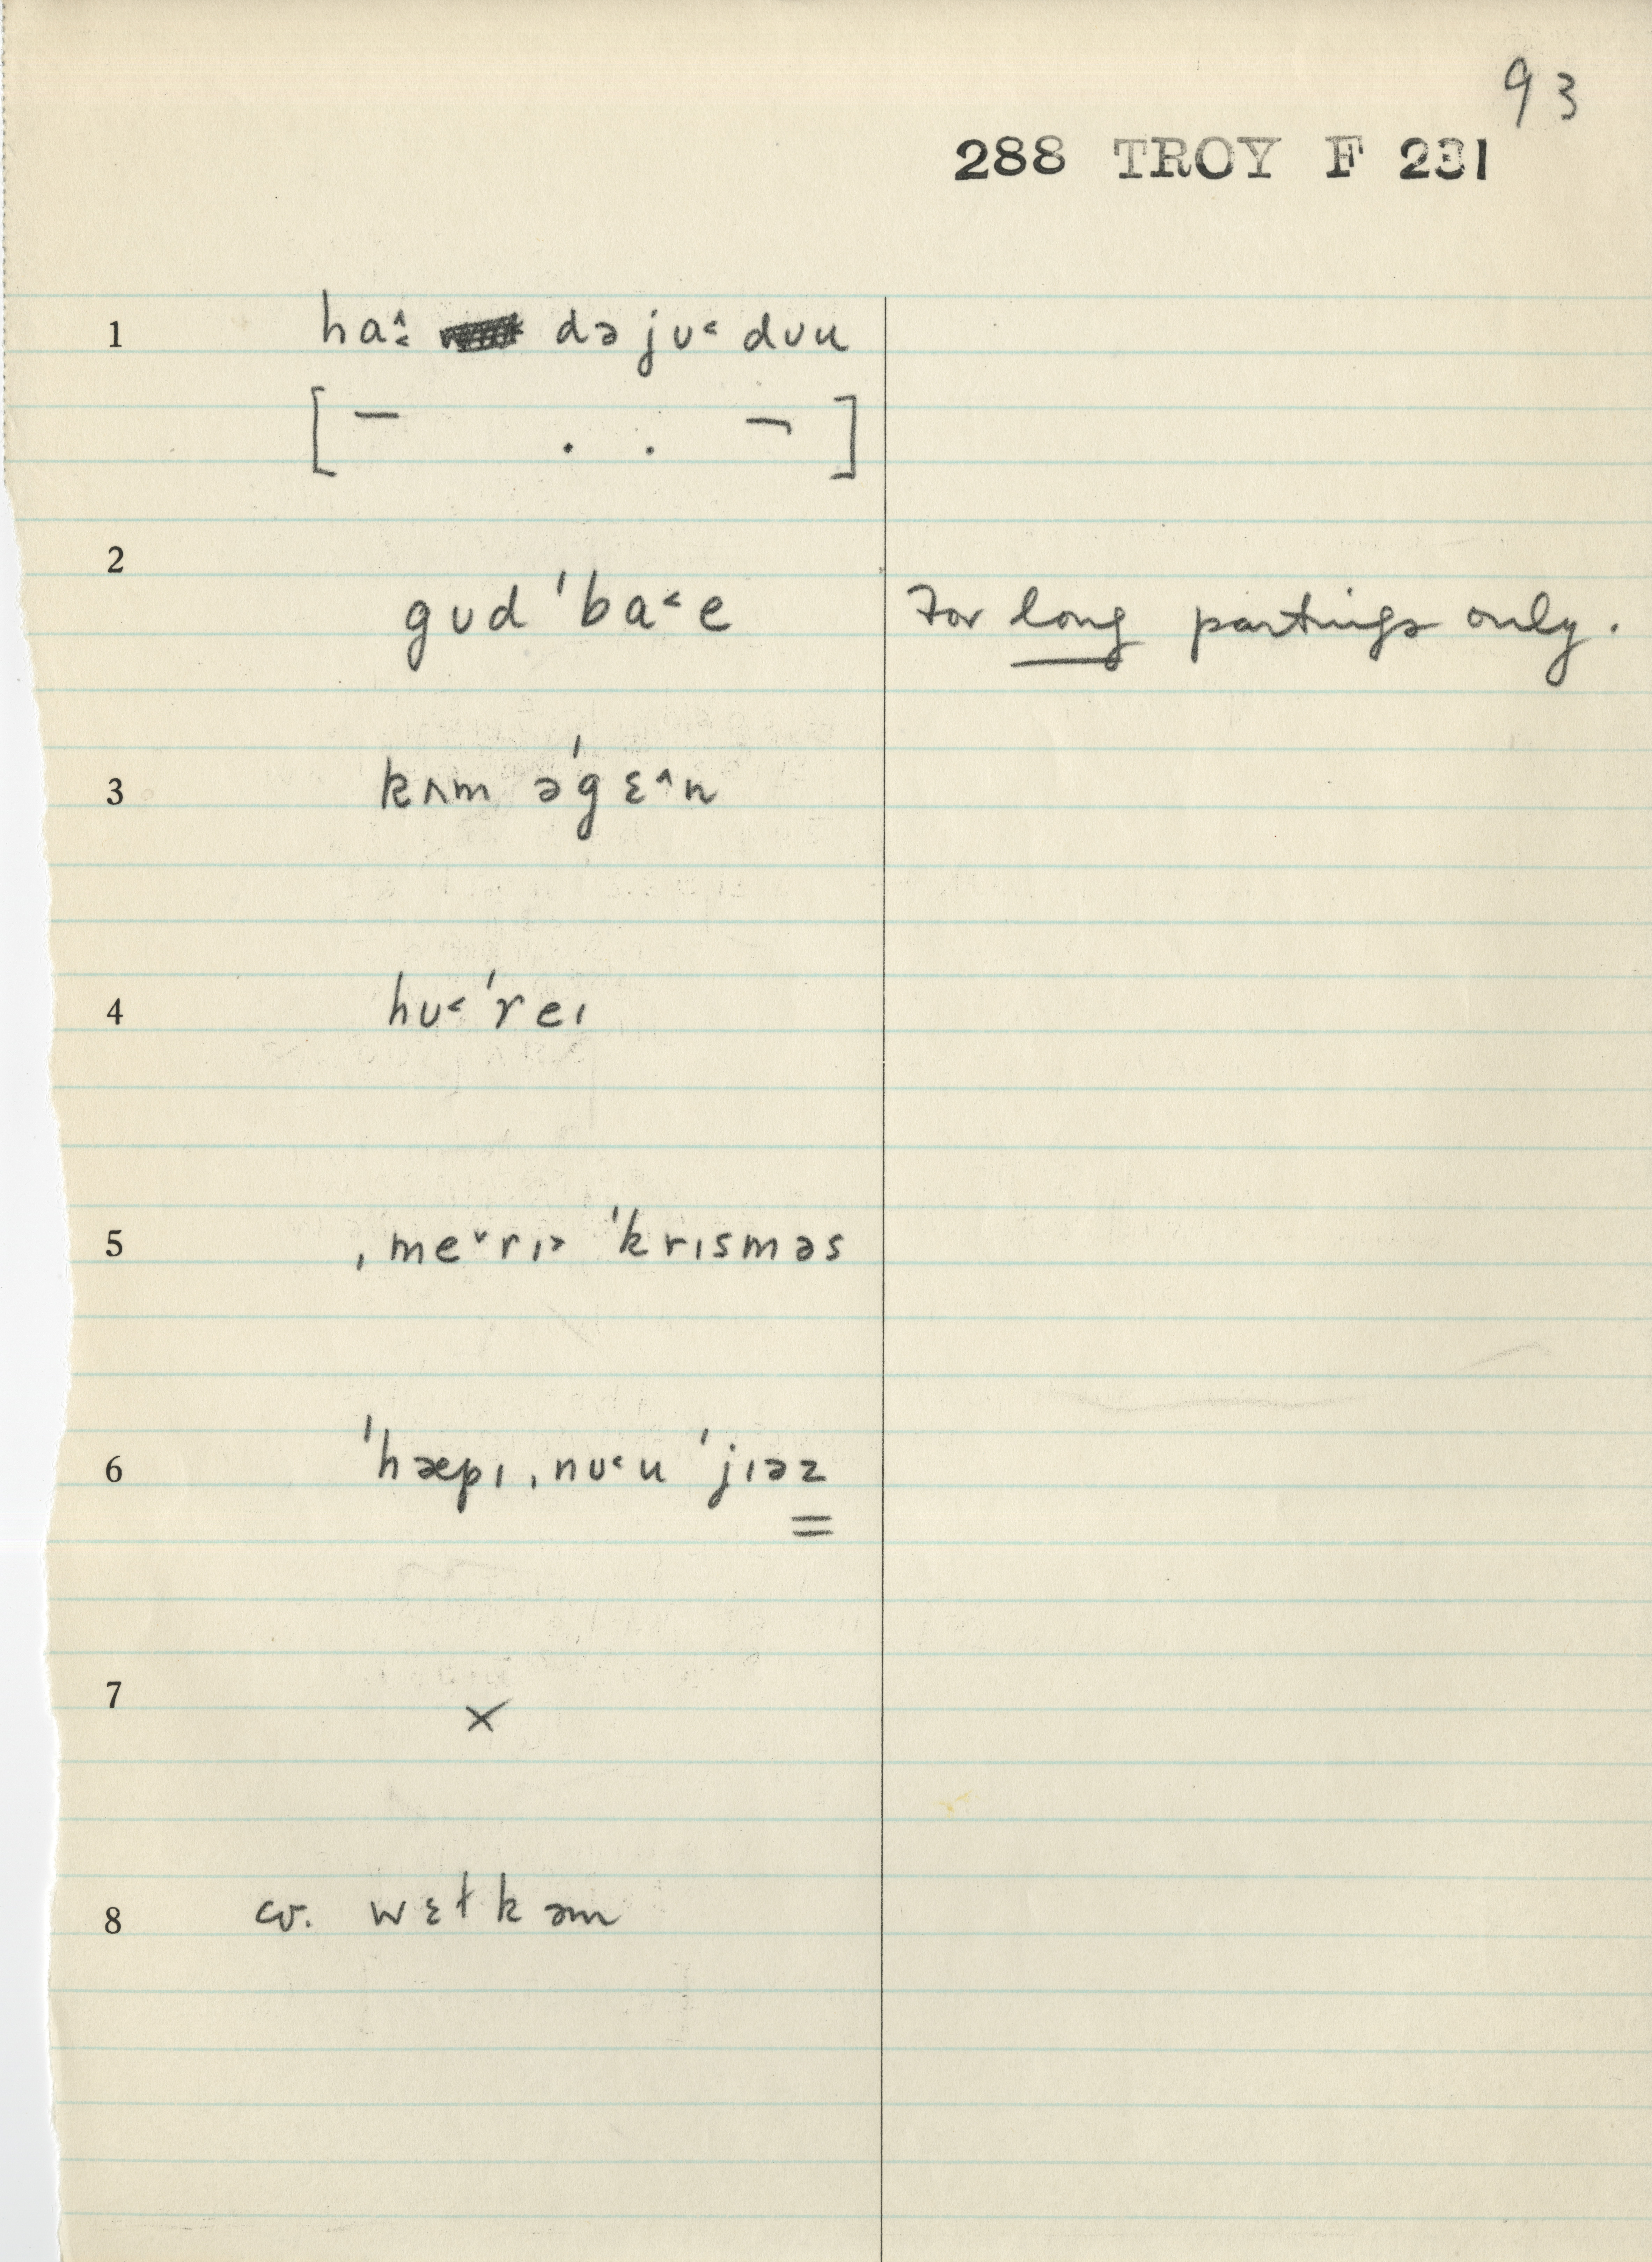 93
288 TROY F 231
1 haː̂ də jʊ˂ dʊu
[ – . . ¬ ]
2 gʊd ˈba˂e For long partings only.
3 kʌm əˈgɛ˄n
4 hʊ˂ ˈreɪ
5 ˌme˅rɪ˃ ˈkrɪsməs
6 ˈhæpɪ ˌnʊ˂u ˈjɪəz
7 ×
8 cv. wɛɫkəm